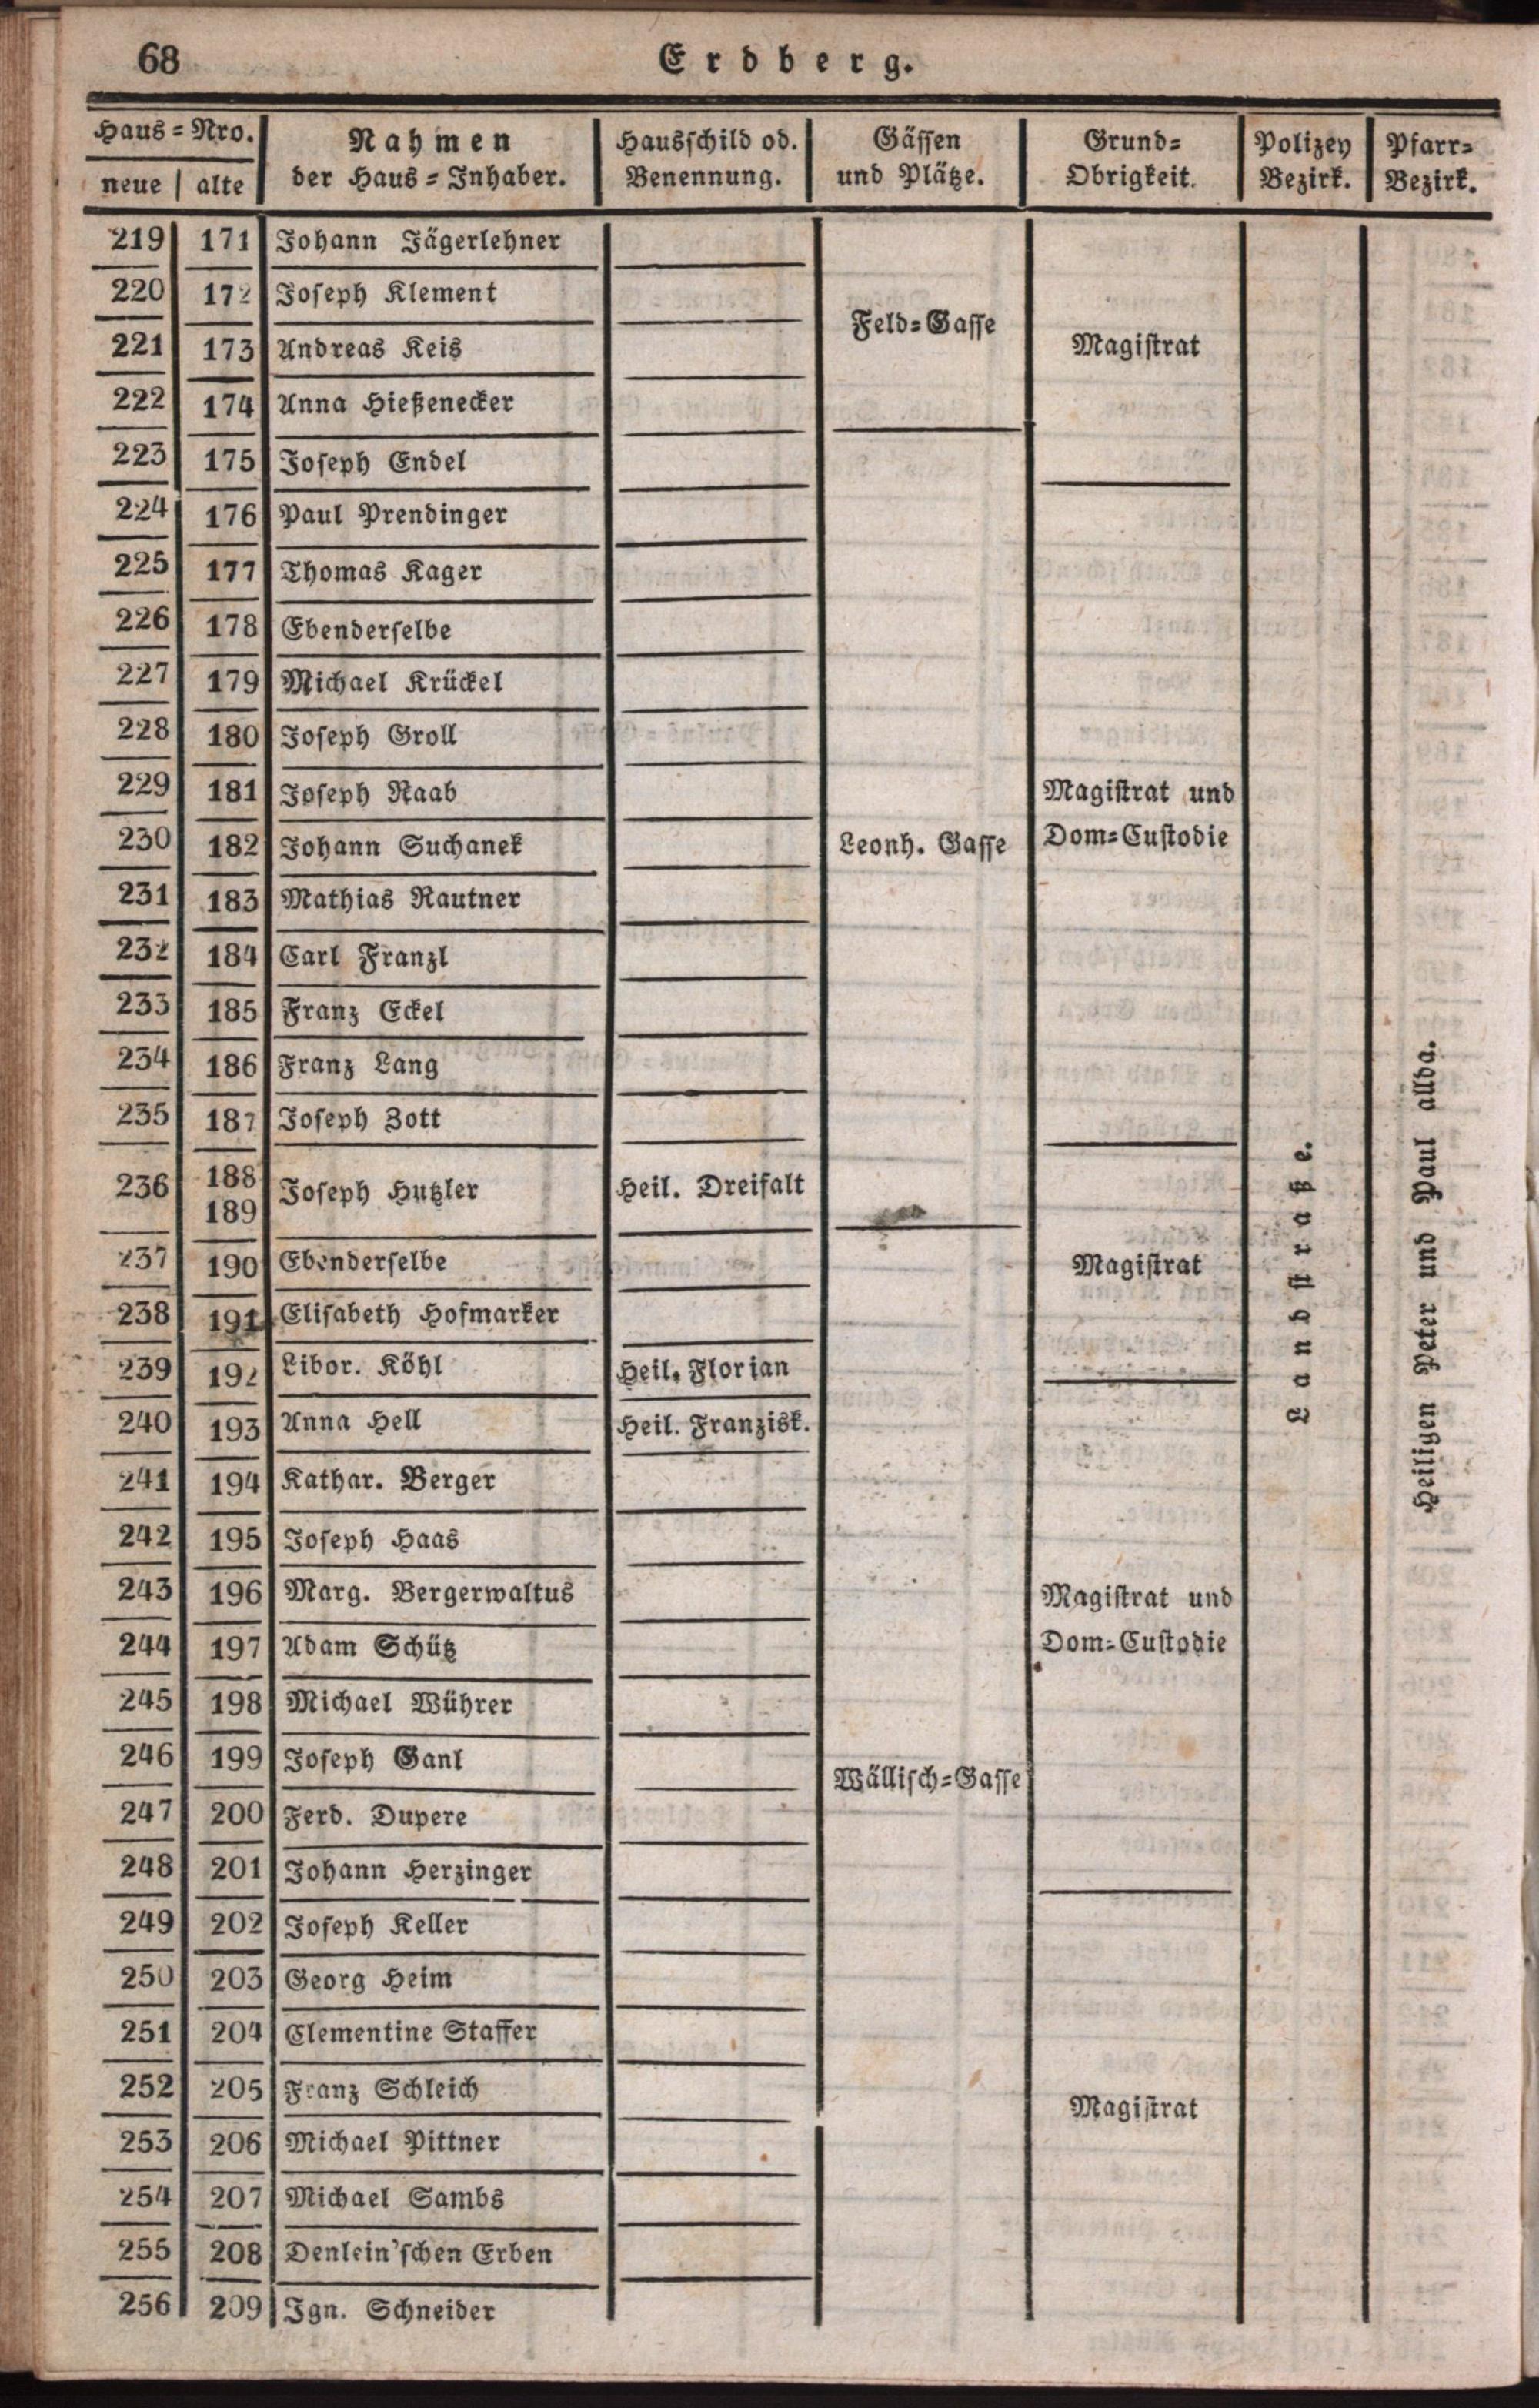 68 Erdberg.
Haus-Nro. Nahmen Hausschild od. Gässen Grund- Polizey Pfarr-
neue alte der Haus-Inhaber. Benennung. und Plätze. Obrigkeit. Bezirk. Bezirk.
219 171 Johann Jägerlehner
220 172 Joseph Klement
Feld-Gasse
221 173 Andreas Keis Magistrat
222 174 Anna Hießenecker
223 175 Joseph Endel
224 176 Paul Prendinger
225 177 Thomas Kager
226 178 Ebenderselbe
227 179 Michael Krückel
228 180 Joseph Groll
229 181 Joseph Raab Magistrat und
230 182 Johann Suchanek Leonh. Gasse Dom-Custodie
231 183 Mathias Rautner
232 184 Carl Franzl
233 185 Franz Eckel
234 186 Franz Lang
235 187 Joseph Zott
236 188 189 Joseph Hutzler Heil. Dreifalt
237 190 Ebenderselbe Magistrat
238 191 Elisabeth Hofmarker
239 192 Libor. Köhl Heil. Florian
240 193 Anna Hell Heil. Franzisk.
Landstraße.
Heiligen Peter und Paul allda.
241 194 Kathar. Berger
242 195 Joseph Haas
243 196 Marg. Bergerwaltus Magistrat und
244 197 Adam Schütz Dom-Custodie
245 198 Michael Wührer
246 199 Joseph Ganl Wällisch-Gasse
247 200 Ferd. Dupere
248 201 Johann Herzinger
249 202 Joseph Keller
250 203 Georg Heim
251 204 Clementine Staffer
252 205 Franz Schleich Magistrat
253 206 Michael Pittner
254 207 Michael Sambs
255 208 Denlein'schen Erben
256 209 Ign. Schneider